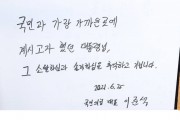 국민과 가장 가까운곳에
계시고자 했던 대통령님,
그 소탈하심과 솔직하심을 추억하고 기립니다.
2021. 6. 25
국민의힘 대표 이준석